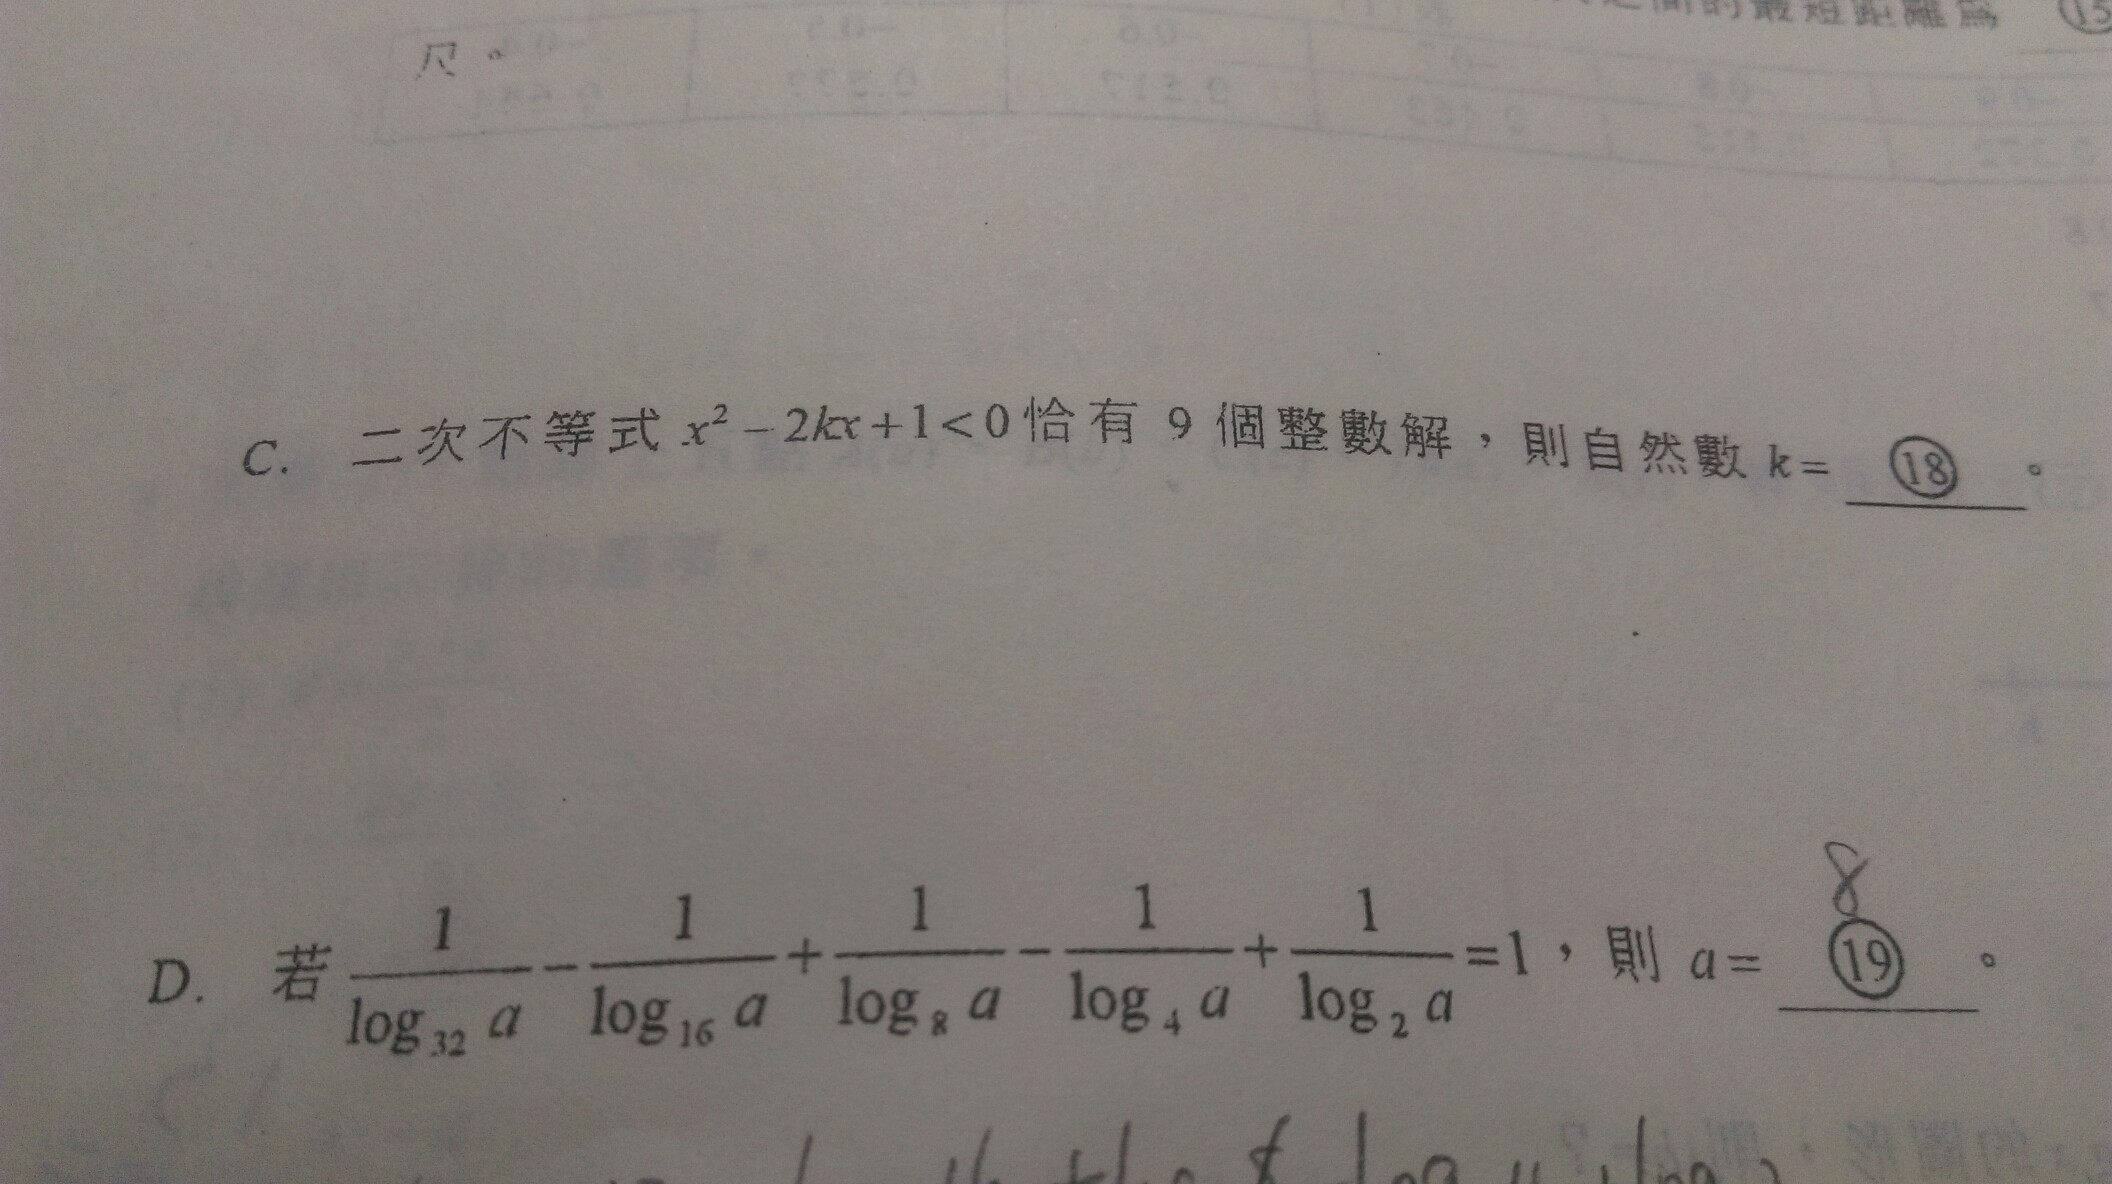 之間的最短距離為 ⑮
尺。
C. 二次不等式 x² − 2kx + 1 < 0 恰有 9 個整數解，則自然數 k = ⑱ 。
8
D. 若 1/log₃₂ a − 1/log₁₆ a + 1/log₈ a − 1/log₄ a + 1/log₂ a = 1，則 a = ⑲ 。